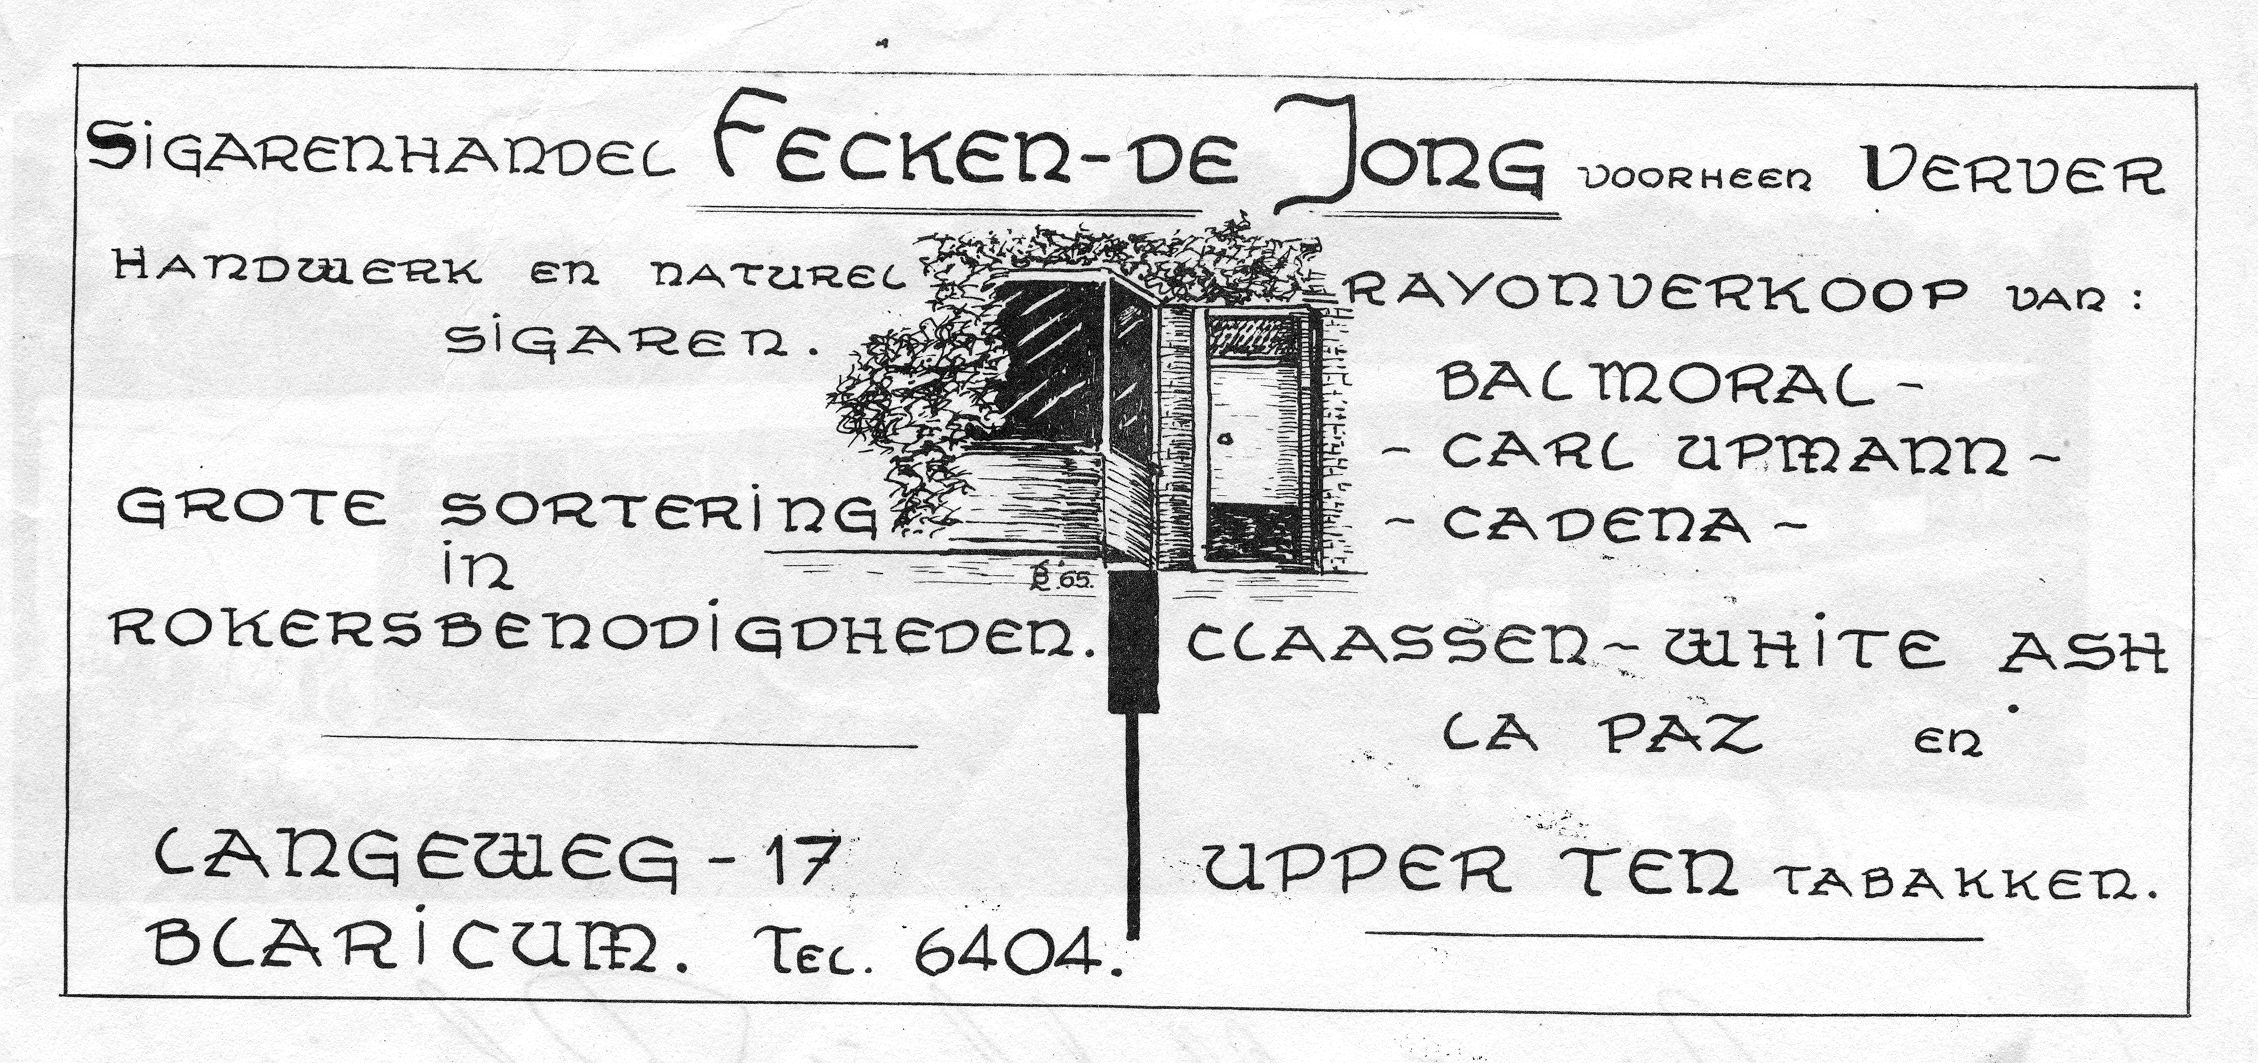 Sigarenhandel Fecken-de Jong voorheen Verver
Handwerk en naturel
sigaren.
Grote sortering
in
rokersbenodigdheden.
Langeweg - 17
Blaricum. Tel. 6404.
'65.
Rayonverkoop van :
Balmoral -
- Carl Upmann -
- Cadena -
Claassen - White Ash
La Paz en
Upper Ten tabakken.